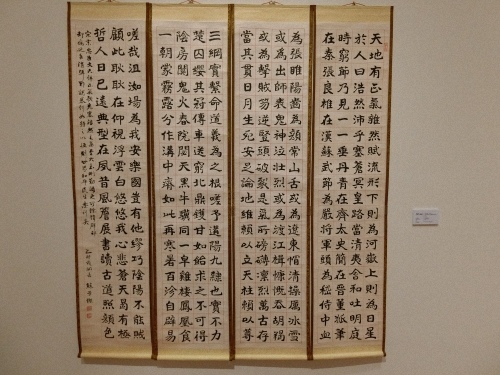 天地有正氣雜然賦流形下則為河嶽上則為日星
於人曰浩然沛乎塞蒼冥皇路當清夷含和吐明庭
時窮節乃見一一垂丹青在齊太史簡在晉董狐筆
在秦張良椎在漢蘇武節為嚴將軍頭為嵇侍中血
為張睢陽齒為顏常山舌或為遼東帽清操厲冰雪
或為出師表鬼神泣壯烈或為渡江楫慷慨吞胡羯
或為擊賊笏逆豎頭破裂是氣所磅礴凜烈萬古存
當其貫日月生死安足論地維賴以立天柱賴以尊
三綱實繫命道義為之根嗟予遘陽九隸也實不力
楚囚纓其冠傳車送窮北鼎鑊甘如飴求之不可得
陰房闃鬼火春院閟天黑牛驥同一皁雞棲鳳凰食
一朝蒙霧露分作溝中瘠如此再寒暑百沴自辟易
嗟哉沮洳場為我安樂國豈有他繆巧陰陽不能賊
顧此耿耿在仰視浮雲白悠悠我心悲蒼天曷有極
哲人日已遠典型在夙昔風簷展書讀古道照顏色